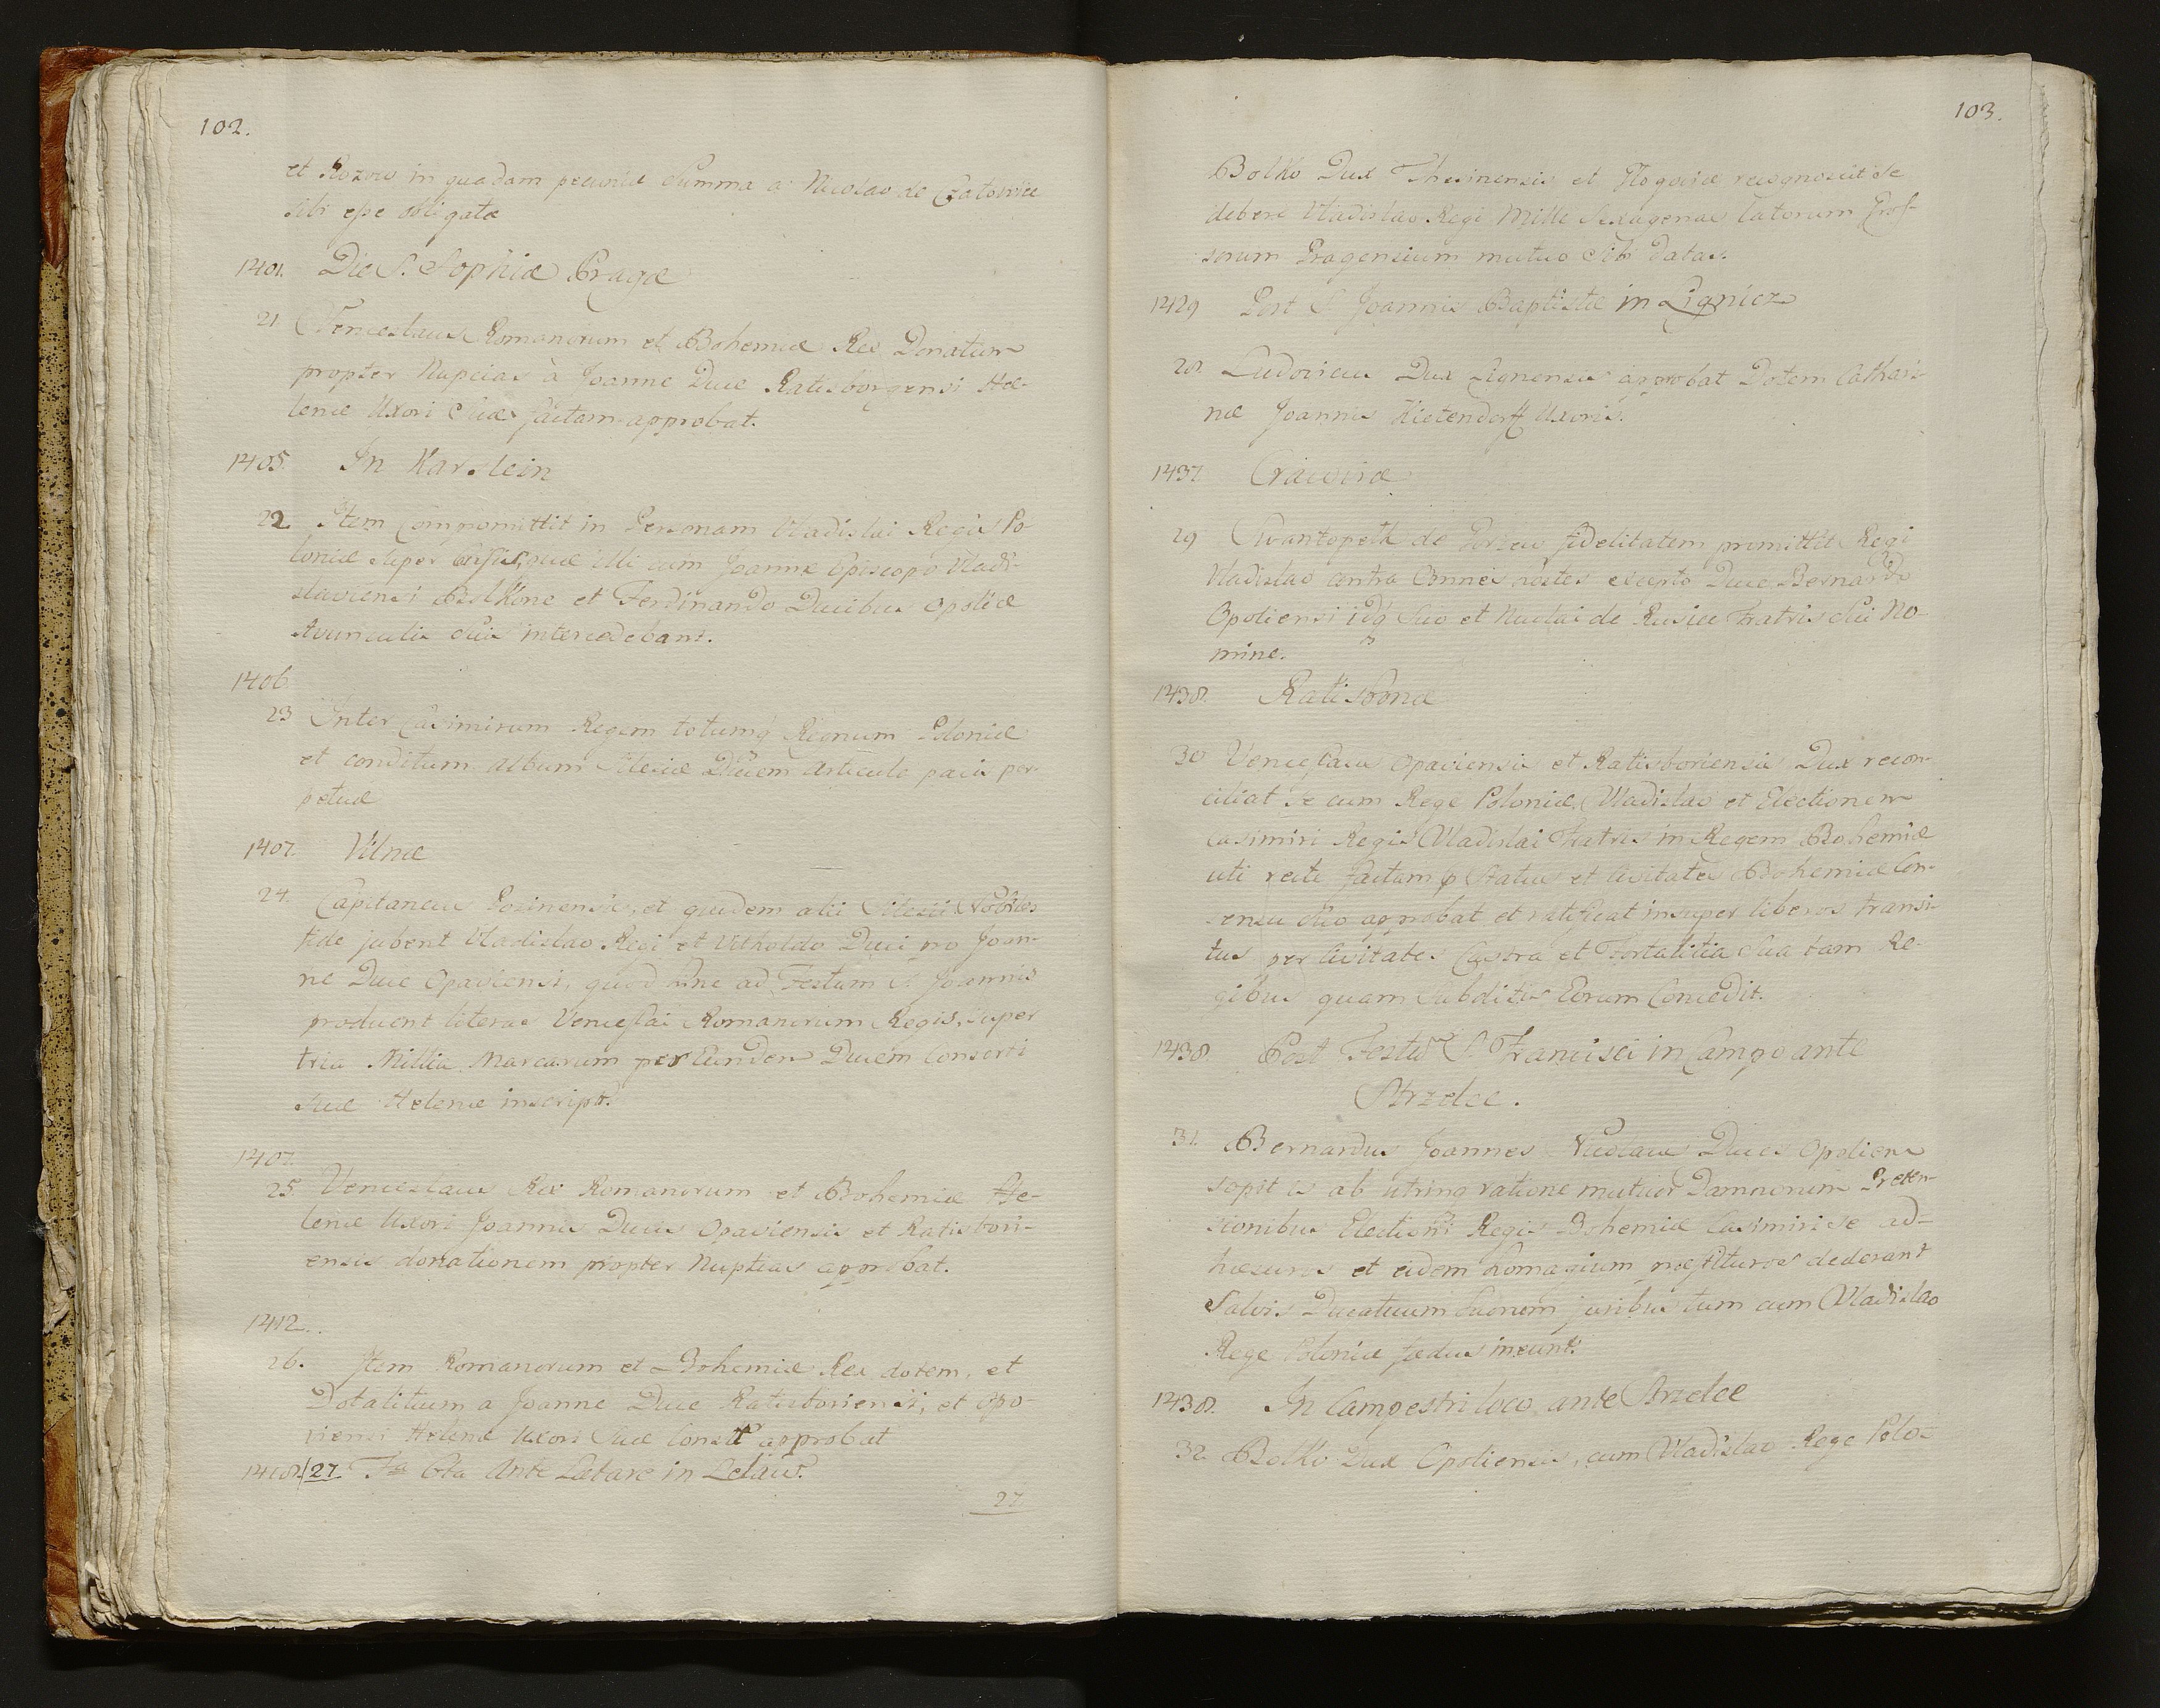 102.
et Rozow in quadam pecuniæ Summa a Nicolao de Czatonice
sibi eße obligatæ
1401. Die S. Sophiæ Pragæ
21 Venceslaus Romanorum et Bohemiæ Rex Donatum
propter Nupcias à Joanne Duce Ratisborgensi He-
lenæ Uxori Suæ factam approbat.
1405. In Karstein
22. Item Compromittit in Personam Vladislai Regis Po-
loniæ super quæ illi cum Joanne Episcopo Vladi-
slaviensi Bolkone et Ferdinando Ducibus Opoliæ
Avunculis suis intercedebant.
1406.
23 Inter Casimirum Regem totumq Regnum Poloniæ
et conditum album Silesiæ Ducem Articule pacis per-
petuæ
1407. Vilnæ
24. Capitaneus Pozinensis, et quidem alii Silesii Nobiles
fide jubent Vladislao Regi et Vitholdo Duci pro Joan-
ne Duce Opaviensi, quod hinc ad Festum S. Joannis
producent literas Vencestai Romanorum Regis, super
tria Millia Marcarum per Eundem Ducem Consorti
suæ Helenæ inscript:
1407.
25 Venceslaus Rex Romanorum et Bohemiæ He-
lenæ Uxori Joannis Ducis Opaviensis et Ratisbori-
ensis donationem propter Nuptias approbat.
1412.
26. Item Romanorum et Bohemiæ Rex dotem, et
Dotalitium a Joanne Duce Ratisboriensi, et Opo-
viensi Helenæ Uxori Suæ approbat
27. Ante Lætare in
27
103.
Bolko Dux Thesinensis et Glogoviæ recognoscit se
debere Vladislao Regi Mille Sexagenas Latorum Gros-
sorum Pragensium mutuo Sibi datas.
1429 Post S Joannis Baptistæ in Lignicz
28. Ludovicus Dux Lignensis approbat Dotem Cathari-
næ Joannis Kietendorff Uxoris.
1437. Cracoviæ
29 Swantopelk de fidelitatem promittit Regi
Vladislao contra Omnes hostes excepto Duce Bernardo
Opoliensi idq Suo et Nicolai de Rusice Fratris Sui No-
mine.
1438. Ratisbonæ
30 Venceslaus Opaviensis et Ratisboriensis Dux recon-
ciliat se cum Rege Poloniæ Vladislao et Electionem
Casimiri Regis Vladislai Fratris in Regem Bohemiæ
uti recte factam p Status et Civitates Bohemiæ Con-
sensu suo approbat et ratificat insuper liberos transi-
tus per Civitates Castra et Fortalitia Sua tam Re-
gibus quam Subditis Eorum Concedit.
1438. Post Festū S. Francisci in Campo ante
Strzelce.
31. Bernardus Joannes Nicolaus Duces Opoliens
sopit is ab utrinq ratione mutuor Damnorum Præten-
sionibus Electioni Regis Bohemiæ Casimiri se ad-
hæsuros et eidem homagium præstituros dederant
Salvis Ducatuum Suorum juribus tum cum Vladislao
Rege Poloniæ fœdus ineunt.
1438. In Campestri loco ante Strzelce
32. Bolko Dux Opoliensis, cum Vladislao Rege Polo-